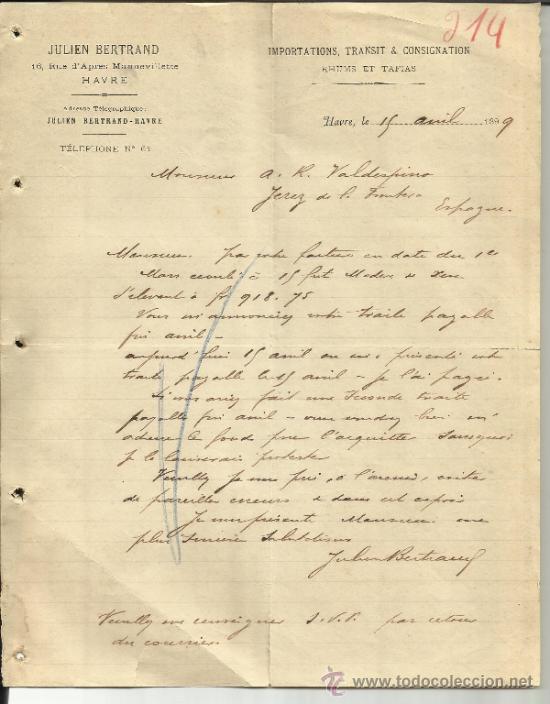 214
JULIEN BERTRAND
16, Rue d'Après Mannevillette
HAVRE
Adresse Télégraphique:
JULIEN BERTRAND-HAVRE
TÉLÉPHONE N° 61
IMPORTATIONS, TRANSIT & CONSIGNATION
RHUMS ET TAFIAS
Havre, le 15 avril 1899
Monsieur A. R. Valdespino
Jerez de l. Frontera
Espagne.
Monsieur. par votre facture en date du 1er
Mars 15 fûts
s'élevant à fr 918.75
Vous m'annonciez votre traite payable
fin avril -
aujourd'hui 15 avril on présenté votre
traite payable le 15 avril - je l'ai payé.
Si vous aviez fait une seconde traite
payable fin avril - vous voudrez bien m'
le fonds pour l'acquitter sans quoi
je la laisserais protester
Veuillez je vous prie, à l'avenir, éviter
de pareilles erreurs & dans cet espoir
Je vous présente Monsieur mes
plus sincères Salutations
Julien Bertrand
Veuillez me renseigner S.V.P. par retour
du courrier.
todocoleccion
www.todocoleccion.net